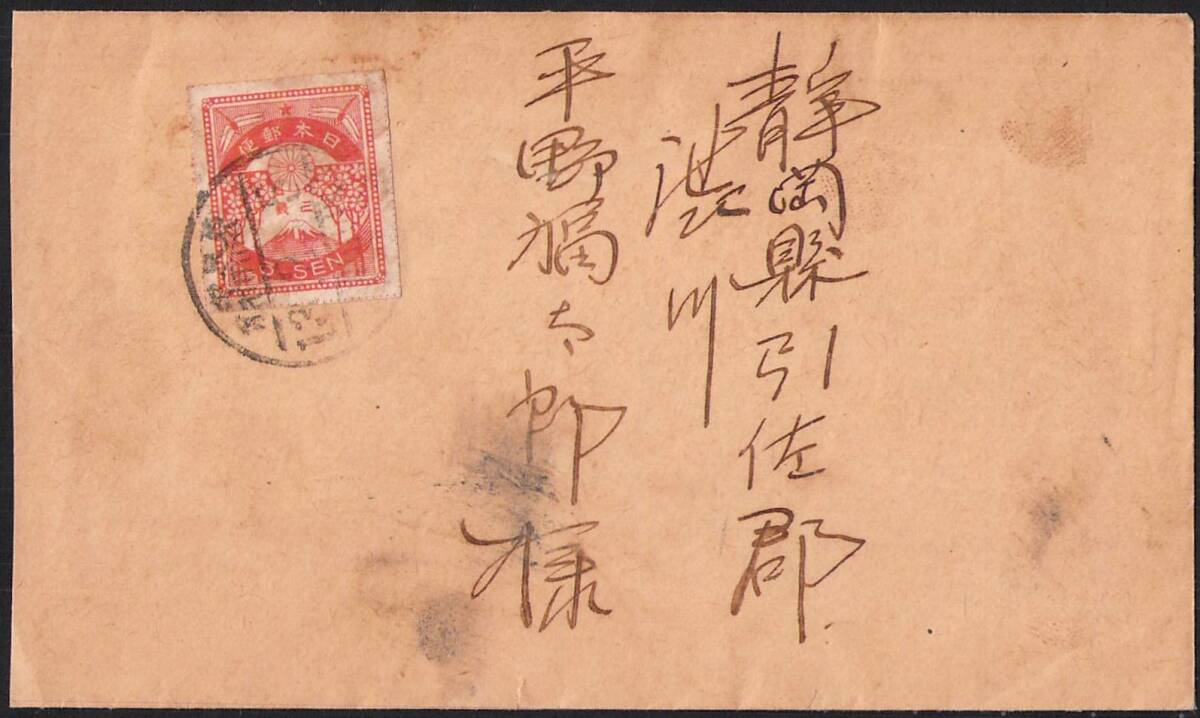 静岡縣引佐郡
渋川
平野福太郎様
日本郵便
三銭
3 SEN